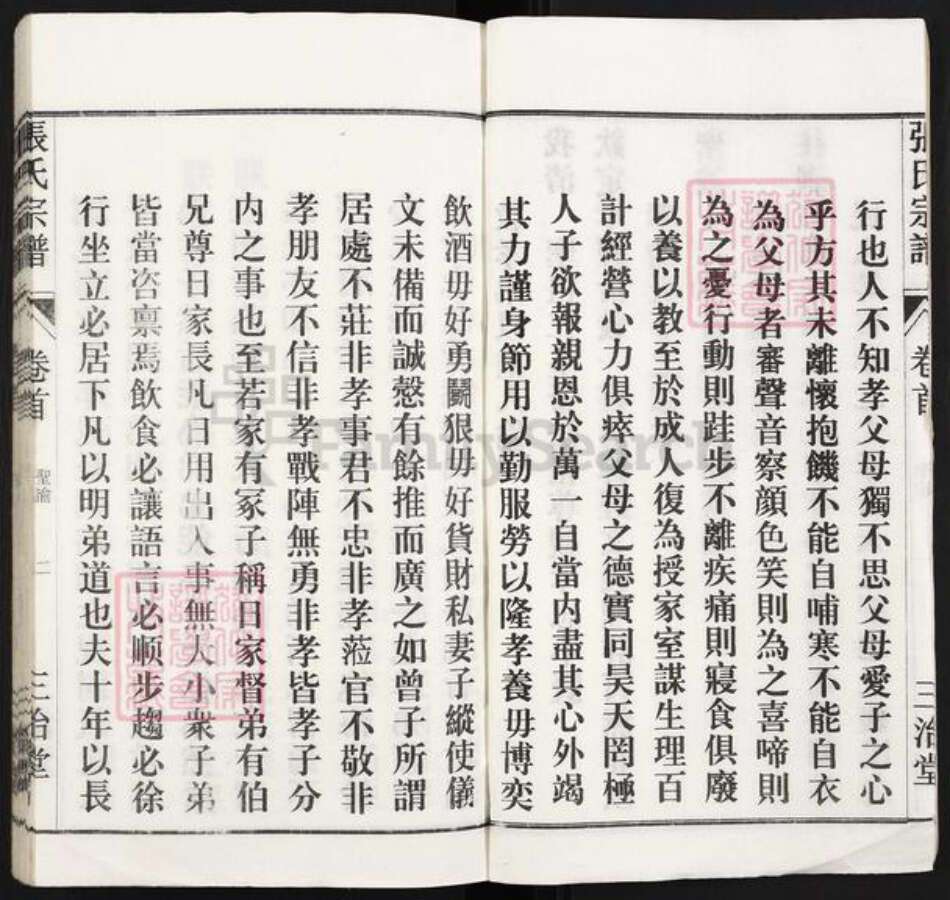 行也人不知孝父母獨不思父母愛子之心
乎方其未離懷抱饑不能自哺寒不能自衣
為父母者審聲音察顏色笑則為之喜啼則
為之憂行動則跬步不離疾痛則寢食俱廢
以養以教至於成人復為授家室謀生理百
計經營心力俱瘁父母之德實同昊天罔極
人子欲報親恩於萬一自當內盡其心外竭
其力謹身節用以勤服勞以隆孝養毋博奕
飲酒毋好勇鬭狠毋好貨財私妻子縱使儀
文未備而誠慤有餘推而廣之如曾子所謂
居處不莊非孝事君不忠非孝蒞官不敬非
孝朋友不信非孝戰陣無勇非孝皆孝子分
內之事也至若家有冢子稱曰家督弟有伯
兄尊曰家長凡日用出入事無大小衆子弟
皆當咨禀焉飲食必讓語言必順步趨必徐
行坐立必居下凡以明弟道也夫十年以長
張氏宗譜
卷首
聖諭
二
三治堂
張氏宗譜
卷首
三治堂
FamilySearch